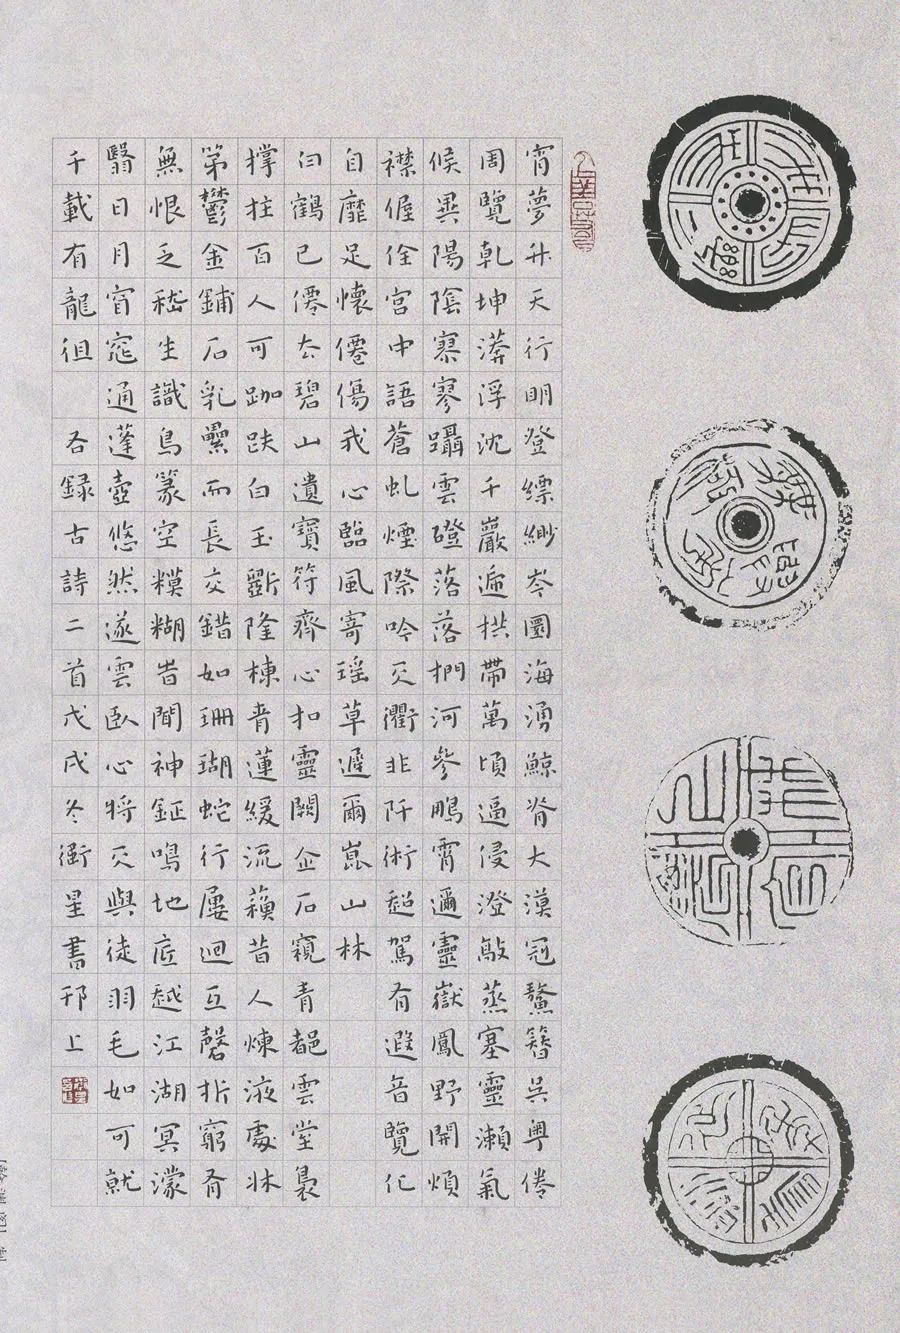 宵夢升天行明登縹緲岑圜海湧鯨脊大漠冠鰲簪吳粵倦
周覽乾坤漭浮沈千巖遞拱帶萬頃逼侵澄敲蒸塞靈瀨氣
候異陽陰寨寥躡雲磴落落捫河參鵬霄邇靈嶽鳳野開煩
襟偓佺宮中語蒼虬煙際吟冥衢非阡術超駕有遐音覽化
自靡足懷僊傷我心臨風寄瑤草遲爾崑山林
曰鶴已僊去碧山遺寶符齊心扣靈闕企石窺青都雲堂裊
撐拄百人可跏趺白玉斲隆棟青蓮緩流蘋昔人煉液處牀
第鬱金鋪石乳纍而長交錯如珊瑚蛇行屢迴互磬折窮脊
無恨乏嵇生識鳥篆空糢糊昔聞神鉦鳴地底越江湖冥濛
翳日月窅窱通蓬壺悠然遂雲臥心將冥與徒羽毛如可就
千載有龍徂
右錄古詩二首戊戌冬衝星書邗上